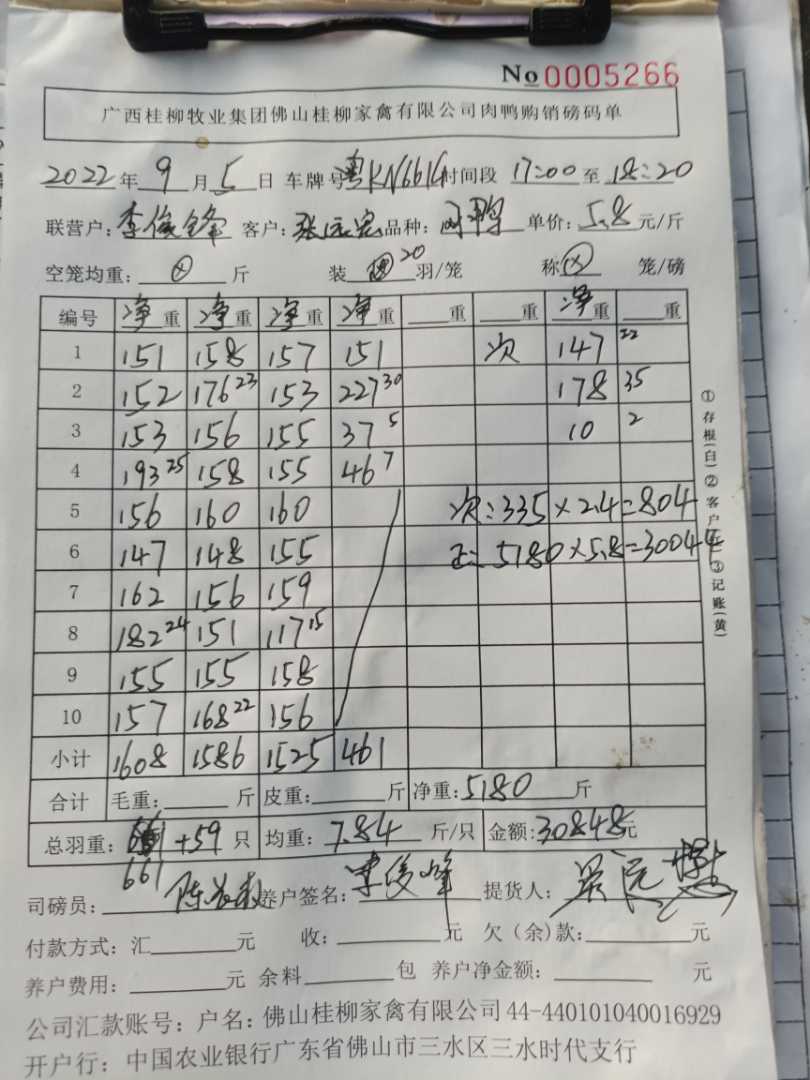 No 0005266
广西桂柳牧业集团佛山桂柳家禽有限公司肉鸭购销磅码单
2022年 9 月 5 日 车牌号 粤KN661G 时间段 17:00 至 18:20
联营户: 李俊锋 客户: 张远宏 品种: 肉鸭 单价: 5.8 元/斤
空笼均重: 斤 装 20 羽/笼 称 笼/磅
编号 净重 净重 净重 净重 重 重 净重 重
1 151 158 157 151 次 147 22
2 152 176 23 153 227 30 178 35
3 153 156 155 37 5 10 2
4 193 25 158 155 46 7
5 156 160 160 次:335×2.4=804
6 147 148 155 正:5180×5.8=30044
7 162 156 159
8 182 24 151 117 15
9 155 155 158
10 157 168 22 156
小计 1608 1586 1525 461
合计 毛重: 斤 皮重: 斤 净重: 5180 斤
总羽重: +59 只 均重: 7.84 斤/只 金额: 30848元
661
司磅员: 养户签名: 李俊峰 提货人:
付款方式: 汇 元 收: 元 欠(余)款: 元
养户费用: 元 余料 包 养户净金额: 元
公司汇款账号: 户名: 佛山桂柳家禽有限公司 44-440101040016929
开户行: 中国农业银行广东省佛山市三水区三水时代支行
①存根(白)②客户 ③记账(黄)